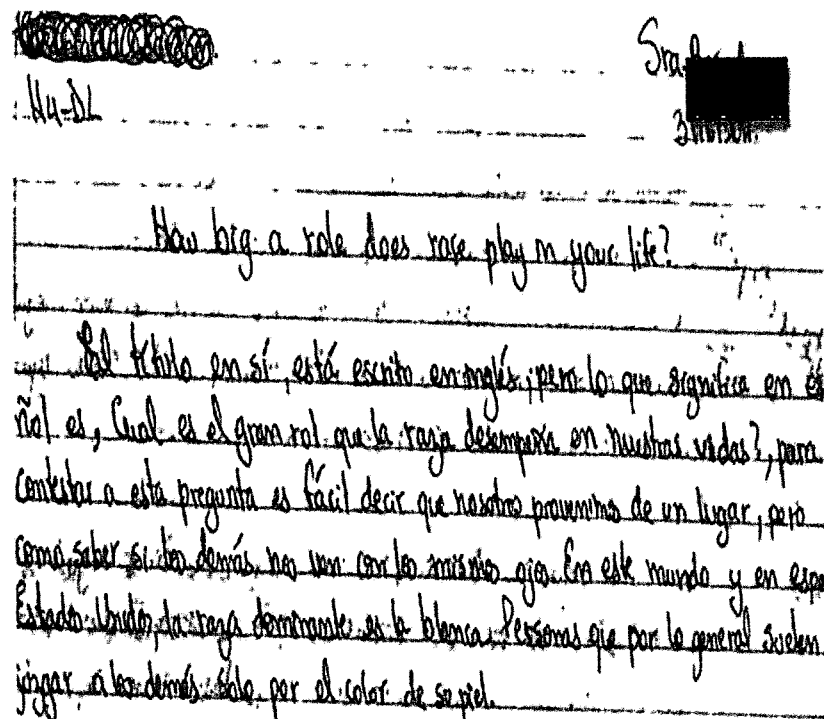 Sra.
H4-DL
How big a role does race play in your life?
El título en sí, está escrito en inglés, pero lo que significa en es
ñol es, Cual es el gran rol que la raza desempeña en nuestras vidas?, para
contestar a esta pregunta es fácil decir que nosotros provenimos de un lugar, pero
como saber si los demás nos ven con los mismos ojos. En este mundo y en espe
Estados Unidos, la raza dominante es la blanca. Personas que por lo general suelen
jusgar a los demás solo por el color de su piel.